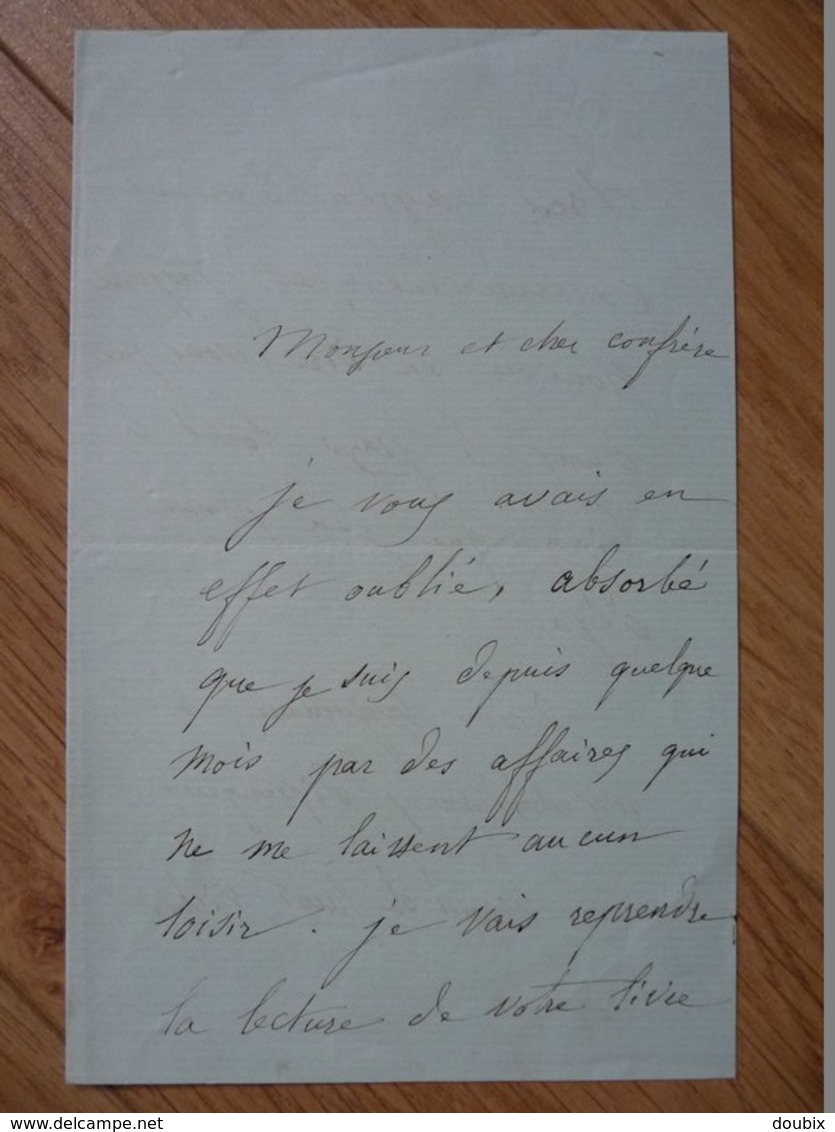 Monsieur et cher confrère
je vous avais en
effet oublié, absorbé
que je suis depuis quelque
mois par des affaires qui
ne me laissent aucun
loisir. je vais reprendre
la lecture de votre livre
www.delcampe.net
doubix